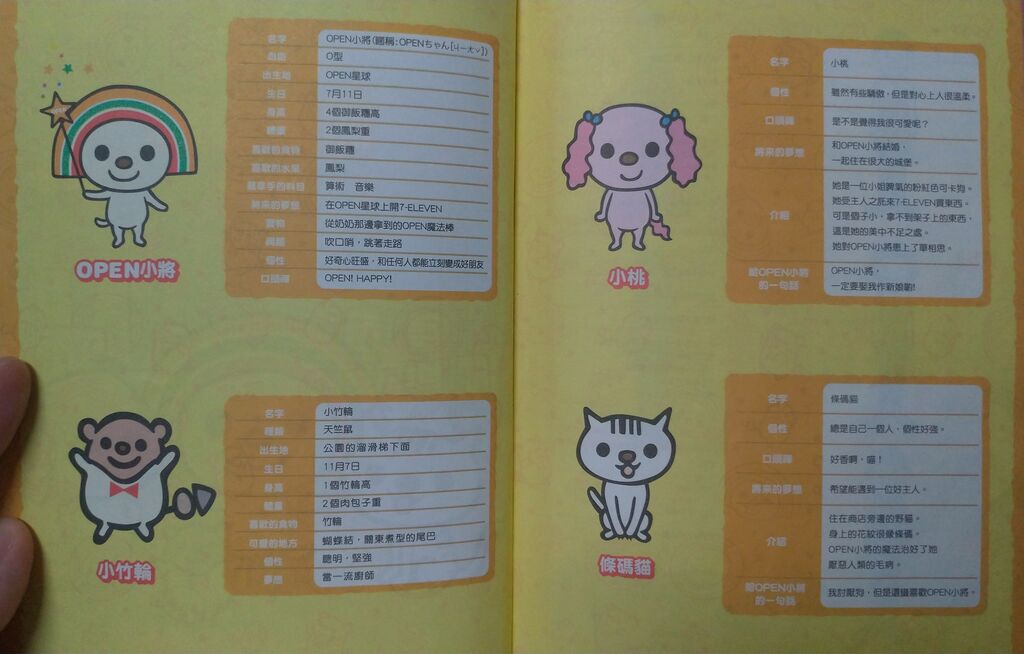 名字 OPEN小將(暱稱:OPENちゃん[ㄐㄧㄤˋ])
血型 O型
出生地 OPEN星球
生日 7月11日
身高 4個御飯糰高
體重 2個鳳梨重
喜歡的食物 御飯糰
喜歡的水果 鳳梨
最拿手的科目 算術 音樂
將來的夢想 在OPEN星球上開7-ELEVEN
寶物 從奶奶那邊拿到的OPEN魔法棒
興趣 吹口哨，跳著走路
個性 好奇心旺盛，和任何人都能立刻變成好朋友
口頭禪 OPEN! HAPPY!
OPEN小將
名字 小竹輪
種類 天竺鼠
出生地 公園的溜滑梯下面
生日 11月7日
身高 1個竹輪高
體重 2個肉包子重
喜歡的食物 竹輪
可愛的地方 蝴蝶結，關東煮型的尾巴
個性 聰明，堅強
夢想 當一流廚師
小竹輪
名字 小桃
個性 雖然有些驕傲，但是對心上人很溫柔。
口頭禪 是不是覺得我很可愛呢？
將來的夢想 和OPEN小將結婚，
一起住在很大的城堡。
介紹 她是一位小姐脾氣的粉紅色可卡狗。
她受主人之託來7-ELEVEN買東西。
可是個子小，拿不到架子上的東西，
這是她的美中不足之處。
她對OPEN小將患上了單相思。
給OPEN小將
的一句話
OPEN小將，
一定要娶我作新娘喲!
小桃
名字 條碼貓
個性 總是自己一個人，個性好強。
口頭禪 好香啊，喵！
將來的夢想 希望能遇到一位好主人。
介紹 住在商店旁邊的野貓。
身上的花紋很像條碼。
OPEN小將的魔法治好了她
厭惡人類的毛病。
給OPEN小將
的一句話
我討厭狗，但是還挺喜歡OPEN小將。
條碼貓